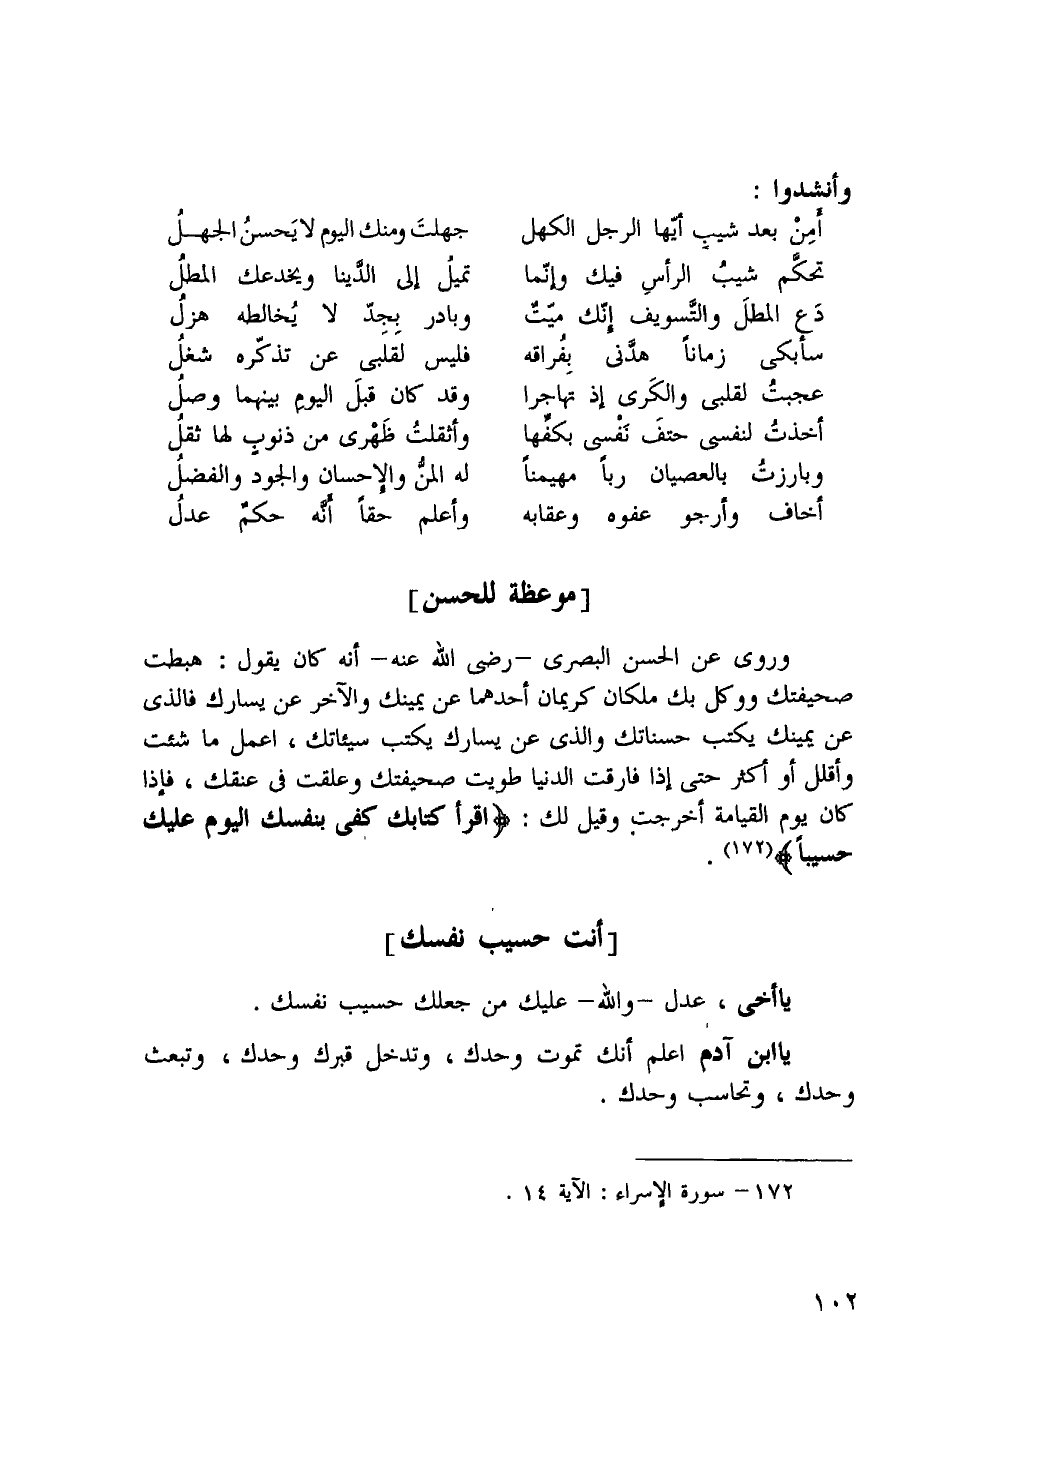 وأنشدوا :
أَمِنْ بعد شيبٍ أيّها الرجل الكهل جهلتَ ومنك اليوم لا يَحسنُ الجهـلُ
تحكَّم شيبُ الرأسِ فيك وإنّما تميلُ إلى الدَّينا ويخدعك المطلُ
دَعِ المطلَ والتَّسويف إنّك ميّتٌ وبادر بِجِدّ لا يُخالطه هزلُ
سأبكى زماناً هدَّنى بِفُراقه فليس لقلبى عن تذكّره شغلُ
عجبتُ لقلبى والكَرى إذ تهاجرا وقد كان قبلَ اليومِ بينهما وصلُ
أخذتُ لنفسى حتفَ نَفْسى بكفِّها وأثقلتُ ظَهْرى من ذنوبٍ لها ثقلُ
وبارزتُ بالعصيان رباً مهيمناً له المنُّ والإحسان والجود والفضلُ
أخاف وأرجو عفوه وعقابه وأعلم حقاً أنَّه حكمٌ عدلُ
[موعظة للحسن]
وروى عن الحسن البصرى –رضى الله عنه– أنه كان يقول : هبطت
صحيفتك ووكل بك ملكان كريمان أحدهما عن يمينك والآخر عن يسارك فالذى
عن يمينك يكتب حسناتك والذى عن يسارك يكتب سيئاتك ، اعمل ما شئت
وأقلل أو أكثر حتى إذا فارقت الدنيا طويت صحيفتك وعلقت فى عنقك ، فإذا
كان يوم القيامة أخرجت وقيل لك : ﴿اقرأ كتابك كفى بنفسك اليوم عليك
حسيباً﴾(١٧٢) .
[أنت حسيب نفسك]
ياأخى ، عدل –والله– عليك من جعلك حسيب نفسك .
ياابن آدم اعلم أنك تموت وحدك ، وتدخل قبرك وحدك ، وتبعث
وحدك ، وتحاسب وحدك .
١٧٢– سورة الإسراء : الآية ١٤ .
١٠٢